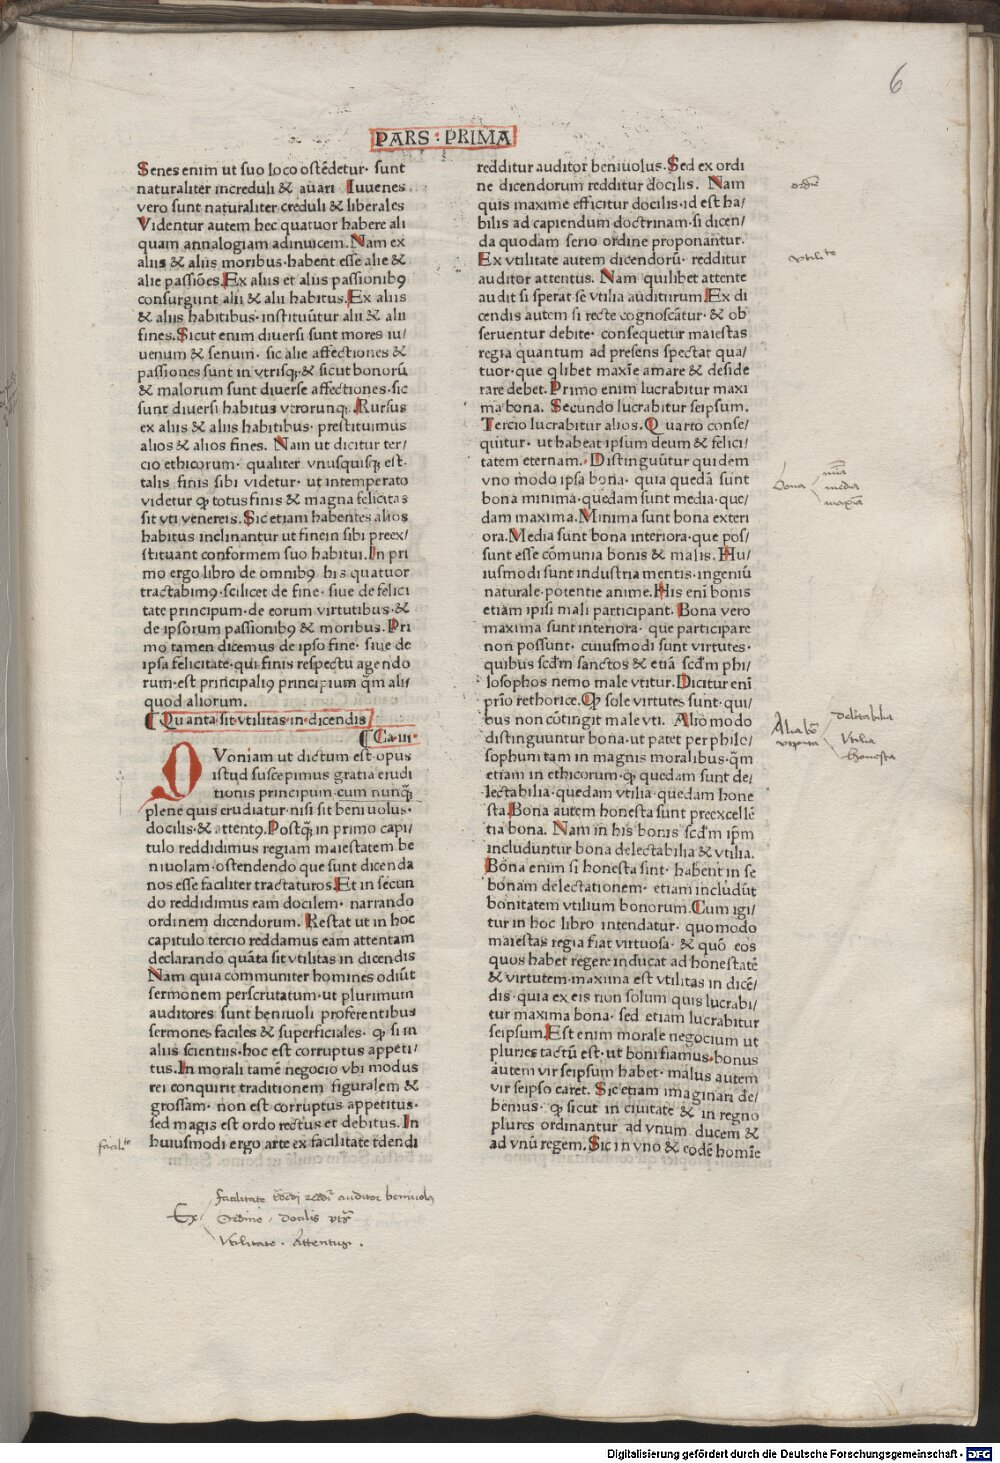 6
PARS : PRIMA
Senes enim ut suo loco ostēdetur· sunt
naturaliter increduli & auari Iuuenes
vero sunt naturaliter creduli & liberales
Videntur autem hec quatuor habere ali
quam annalogiam adinuicem. Nam ex
aliis & aliis moribus·habent esse alie &
alie passiōes. Ex aliis et aliis passionibꝰ
consurgunt alii & alii habitus. Ex aliis
& aliis habitibus·instituūtur alii & alii
fines. Sicut enim diuersi sunt mores iu/
uenum & senum· sic alie affectiones &
passiones sunt in vtrisqꝫ·& sicut bonorū
& malorum sunt diuerse affectiones·sic
sunt diuersi habitus vtrorunqꝫ. Rursus
ex aliis & aliis habitibus· prestituimus
alios & alios fines. Nam ut dicitur ter/
cio ethicorum· qualiter vnusquisqꝫ est·
talis finis sibi videtur· ut intemperato
videtur ꝙ totus finis & magna felicitas
sit vti venereis. Sic etiam habentes alios
habitus inclinantur ut finem sibi preex/
stituant conformem suo habitui. In pri
mo ergo libro de omnibꝰ his quatuor
tractabimꝰ·scilicet de fine· siue de felici
tate principum·de eorum virtutibus·&
de ipsorum passionibꝰ & moribus. Pri
mo tamen dicemus de ipso fine· siue de
ipsa felicitate·qui finis respectu agendo
rum·est principaliꝰ principium q̄m ali/
quod aliorum.
Quanta sit vtilitas·in·dicendis
Ca·iii·
QVoniam ut dictum est·opus
istud suscepimus gratia erudi
tionis principum·cum nunqꝫ
plene quis erudiatur·nisi sit beniuolus·
docilis·& attentꝰ. Postqꝫ in primo capi/
tulo reddidimus regiam maiestatem be
niuolam·ostendendo que sunt dicenda
nos esse faciliter tractaturos. Et in secun
do reddidimus eam docilem· narrando
ordinem dicendorum. Restat ut in hoc
capitulo tercio reddamus eam attentam
declarando quāta sit vtilitas in dicendis
Nam quia communiter homines odiūt
sermonem perscrutatum·ut plurimum
auditores sunt beniuoli proferentibus
sermones faciles & superficiales· ꝙ si in
aliis scientiis·hoc est corruptus appeti/
tus. In morali tamē negocio vbi modus
rei conquirit traditionem figuralem &
grossam· non est corruptus appetitus·
sed magis est ordo rectus et debitus. In
huiusmodi ergo arte ex facilitate tdendi
redditur auditor beniuolus. Sed ex ordi
ne dicendorum redditur docilis. Nam
quis maxime efficitur docilis·id est ha/
bilis ad capiendum doctrinam·si dicen/
da quodam serio ordine proponantur.
Ex vtilitate autem dicendorū· redditur
auditor attentus. Nam quilibet attente
audit si sperat se vtilia auditurum. Ex di
cendis autem si recte cognoscātur·& ob
seruentur debite· consequetur maiestas
regia quantum ad presens spectat qua/
tuor·que qlibet maxie amare & deside
rare debet. Primo enim lucrabitur maxi
ma bona. Secundo lucrabitur seipsum.
Tercio lucrabitur alios. Quarto conse/
quitur· ut habeat ipsum deum & felici/
tatem eternam. Distinguūtur quidem
vno modo ipsa bona· quia quedā sunt
bona minima·quedam sunt media·que/
dam maxima. Minima sunt bona exteri
ora. Media sunt bona interiora·que pos/
sunt esse cōmunia bonis & malis. Hu/
iusmodi sunt industria mentis·ingeniū
naturale·potentie anime. His eni bonis
etiam ipisi mali participant. Bona vero
maxima sunt interiora· que participare
non possunt· cuiusmodi sunt virtutes·
quibus scd̄m sanctos & etiā scd̄m phi/
losophos nemo male vtitur. Dicitur eni
prīo rethorice. Ꝙ sole virtutes sunt·qui/
bus non cōtingit male vti. Alio modo
distinguuntur bona·ut patet per philo/
sophum tam in magnis moralibus·q̄m
etiam in ethicorum·ꝙ quedam sunt de/
lectabilia·quedam vtilia·quedam hone
sta. Bona autem honesta sunt preexcellē
tia bona. Nam in his bonis scd̄m ip̄m
includuntur bona delectabilia & vtilia.
Bona enim si honesta sint· habent in se
bonam delectationem· etiam includūt
bonitatem vtilium bonorum. Cum igi/
tur in hoc libro intendatur· quomodo
maiestas regia fiat virtuosa· & quō eos
quos habet regere inducat ad honestatē
& virtutem·maxima est vtilitas in dicē/
dis·quia ex eis non solum quis lucrabi/
tur maxima bona· sed etiam lucrabitur
seipsum. Est enim morale negocium ut
pluries tactū est·ut boni fiamus·bonus
autem vir seipsum habet·malus autem
vir seipso caret. Sic etiam imaginari de/
bemus· ꝙ sicut in ciuitate & in regno
plures ordinantur ad vnum ducem &
ad vnū regem. Sic in vno & eodē homīe
ordīe
vtilite
bona
mīa
media
maxīa
delectabilia
Vtilia
honesta
facilite
Ex
Ordine · docilis
Vtilitate · Attentus .
Digitalisierung gefördert durch die Deutsche Forschungsgemeinschaft - DFG